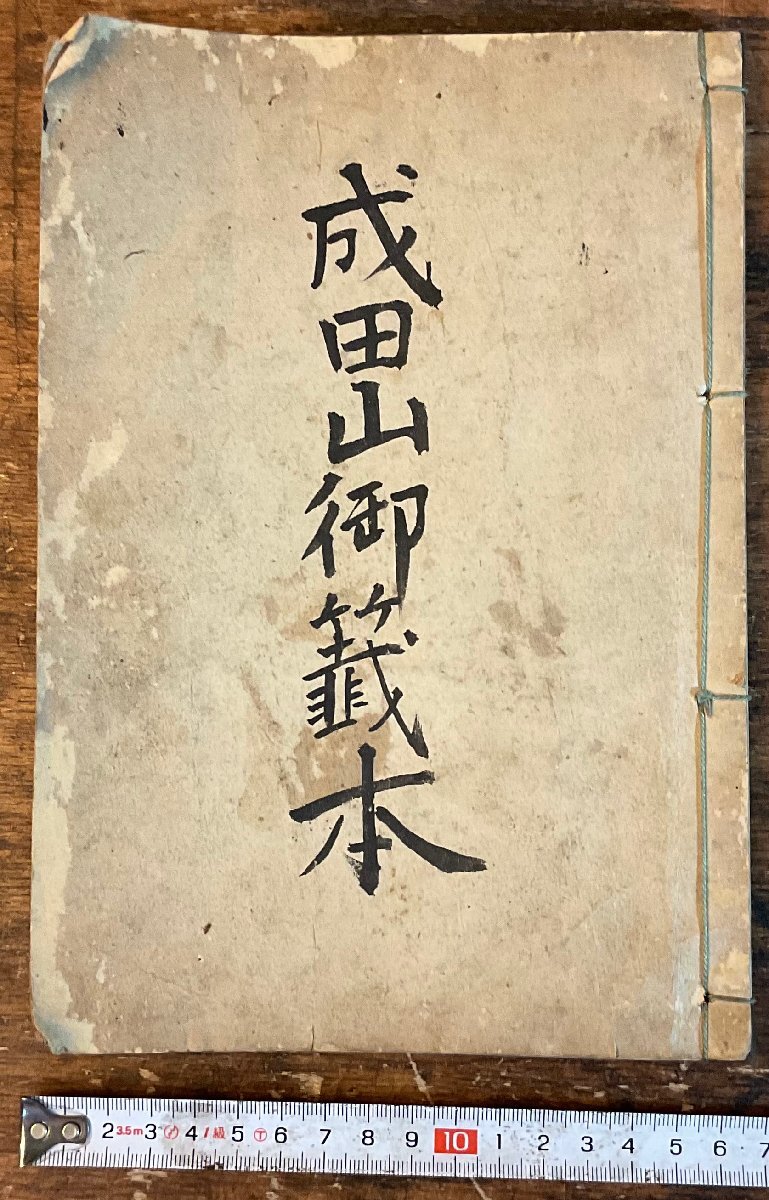 成田山御籤本
2 3.5m 3 4 1級 5 6 7 8 9 10 1 2 3 4 5 6 7